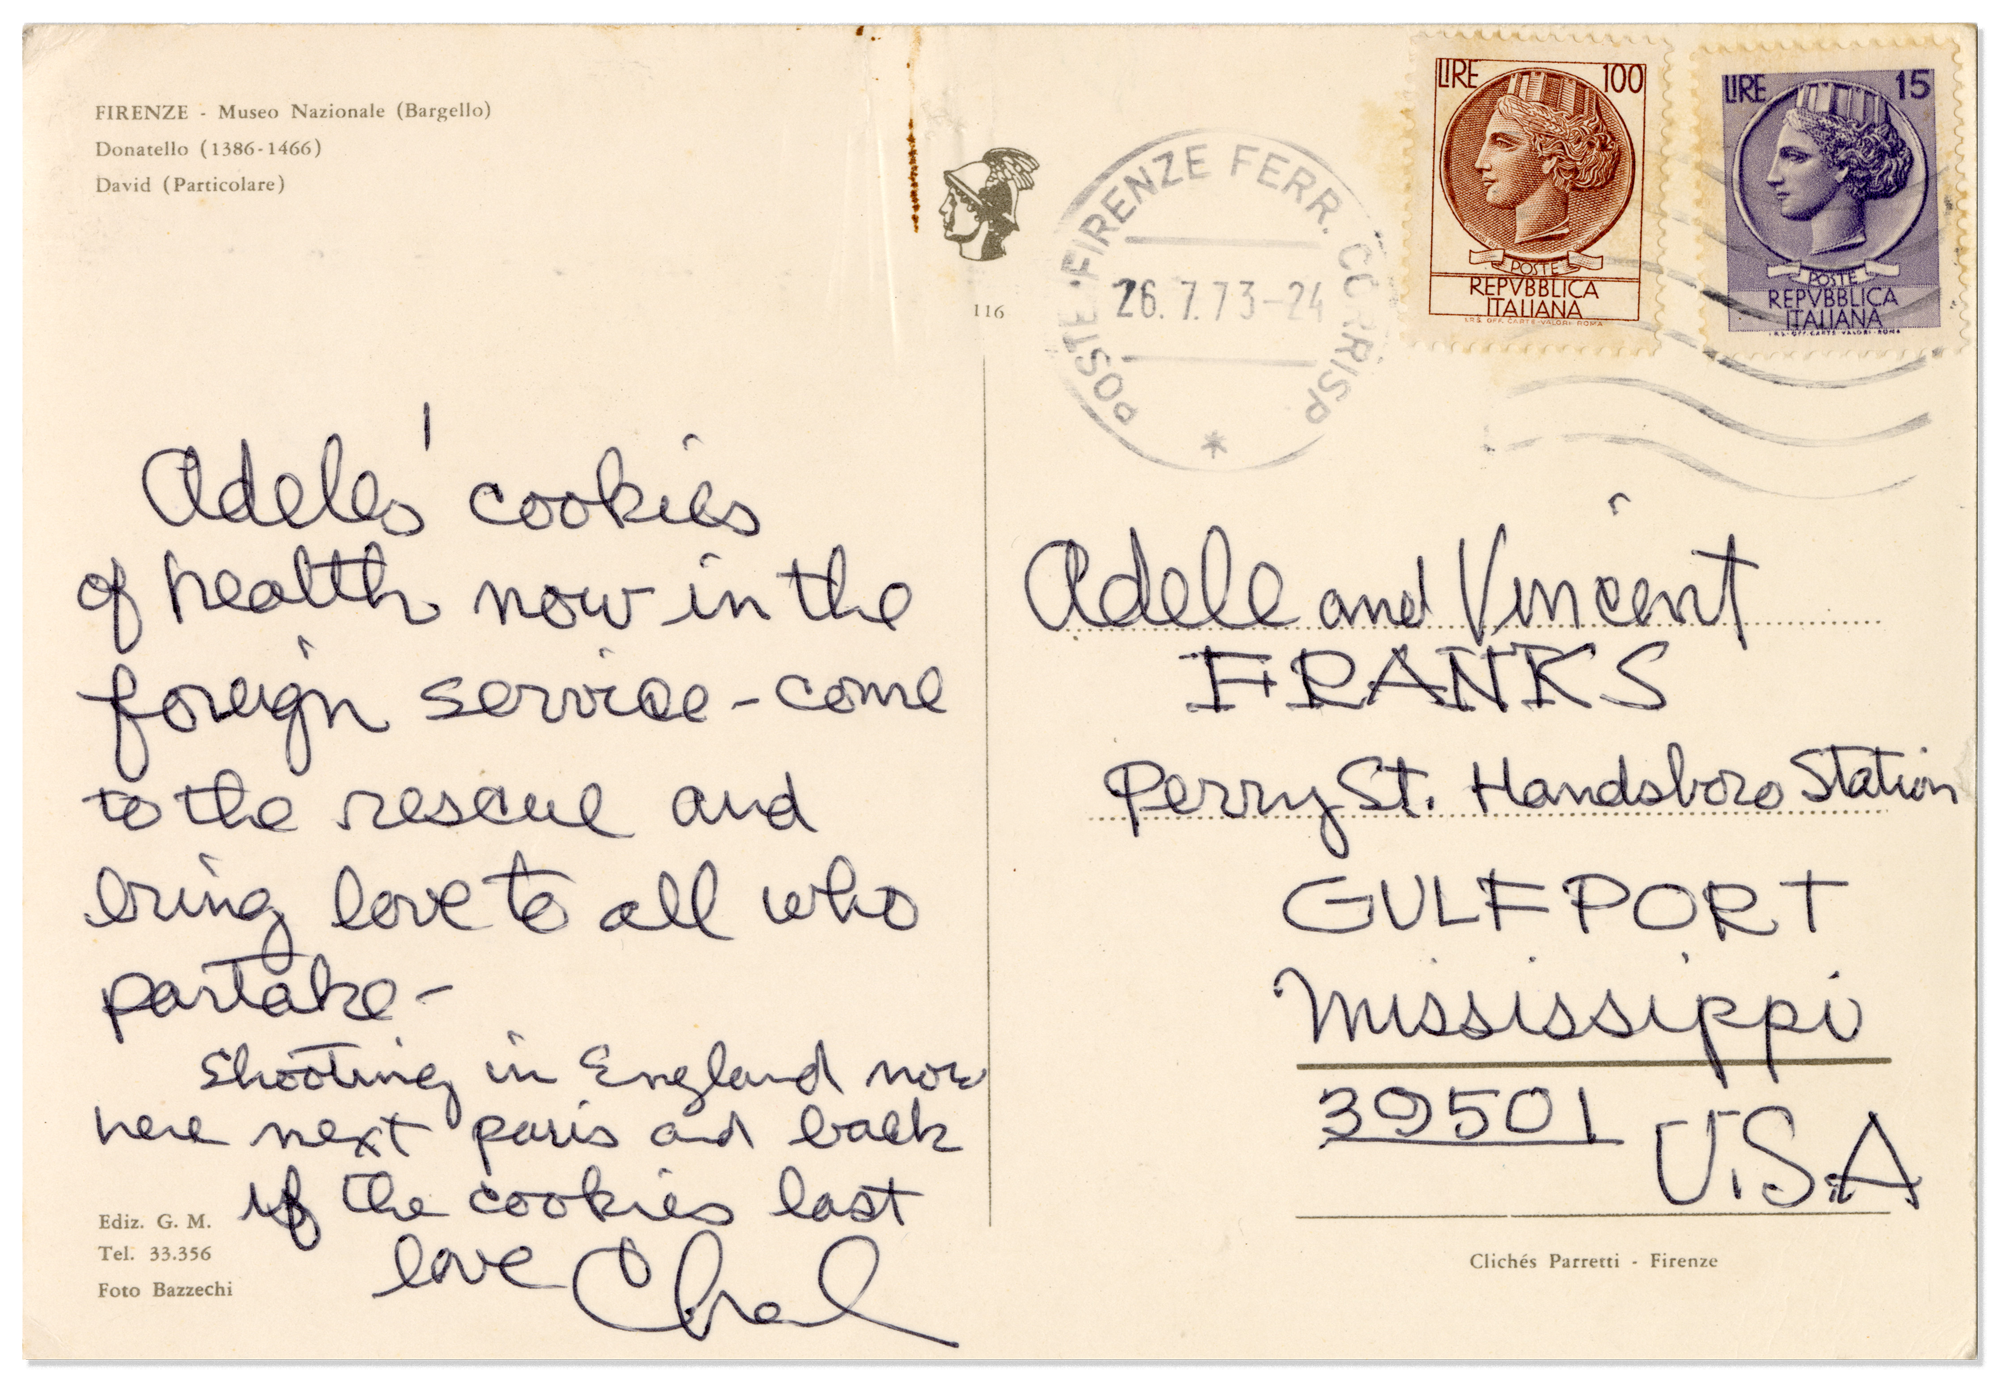 FIRENZE - Museo Nazionale (Bargello)
Donatello (1386-1466)
David (Particolare)
116
POSTE-FIRENZE FERR. CORRISP.
26.7.73-24
LIRE 100
POSTE
REPVBBLICA
ITALIANA
I.P.S. OFF. CARTE-VALORI-ROMA
LIRE 15
POSTE
REPVBBLICA
ITALIANA
I.P.S.-OFF. CARTE-VALORI-ROMA
Adeles' cookies
of health now in the
foreign service - come
to the rescue and
bring love to all who
partake -
Shooting in England now
here next paris and back
if the cookies last
love
Ediz. G. M.
Tel. 33.356
Foto Bazzechi
Adele and Vincent
FRANKS
Perry St. Handsboro Station
GULFPORT
Mississippi
39501 U.S.A
Clichés Parretti - Firenze